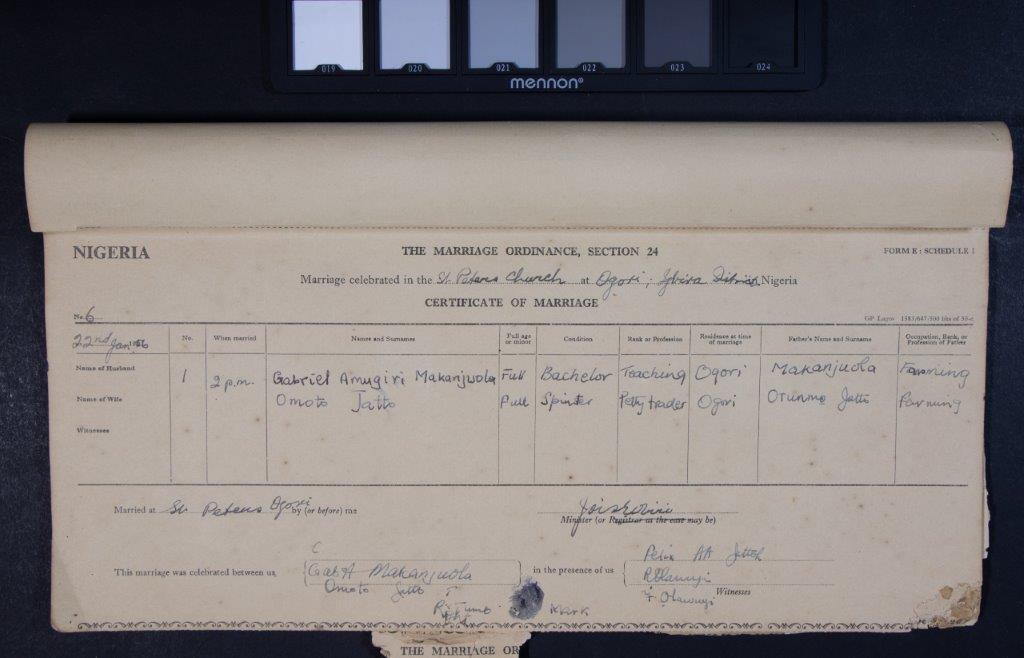 019 020 021 022 023 024
mennon®
NIGERIA THE MARRIAGE ORDINANCE, SECTION 24 FORM E : SCHEDULE 1
Marriage celebrated in the St. Peters Church at Ogori; Igbira Nigeria
CERTIFICATE OF MARRIAGE
No. 6
GP Lagos 1583/647/500 bks of 50-c
22nd Jan No. When married Names and Surnames Full age or minor Condition Rank or Profession Residence at time of marriage Father's Name and Surname Occupation, Rank, or Profession of Father
Name of Husband 1 2 p.m. Gabriel Amugiri Makanjuola Full Bachelor Teaching Ogori Makanjuola Farming
Name of Wife Omoto Jatto Full Spinster Petty trader Ogori Orunmo Jatto Farming
Witnesses
Married at St. Peters Ogori by (or before) me
Minister (or Registrar as the case may be)
This marriage was celebrated between us, Gab A Makanjuola in the presence of us
Omoto Jatto
Witnesses
F. Olawuyi
R. Tumb Mark
THE MARRIAGE OR